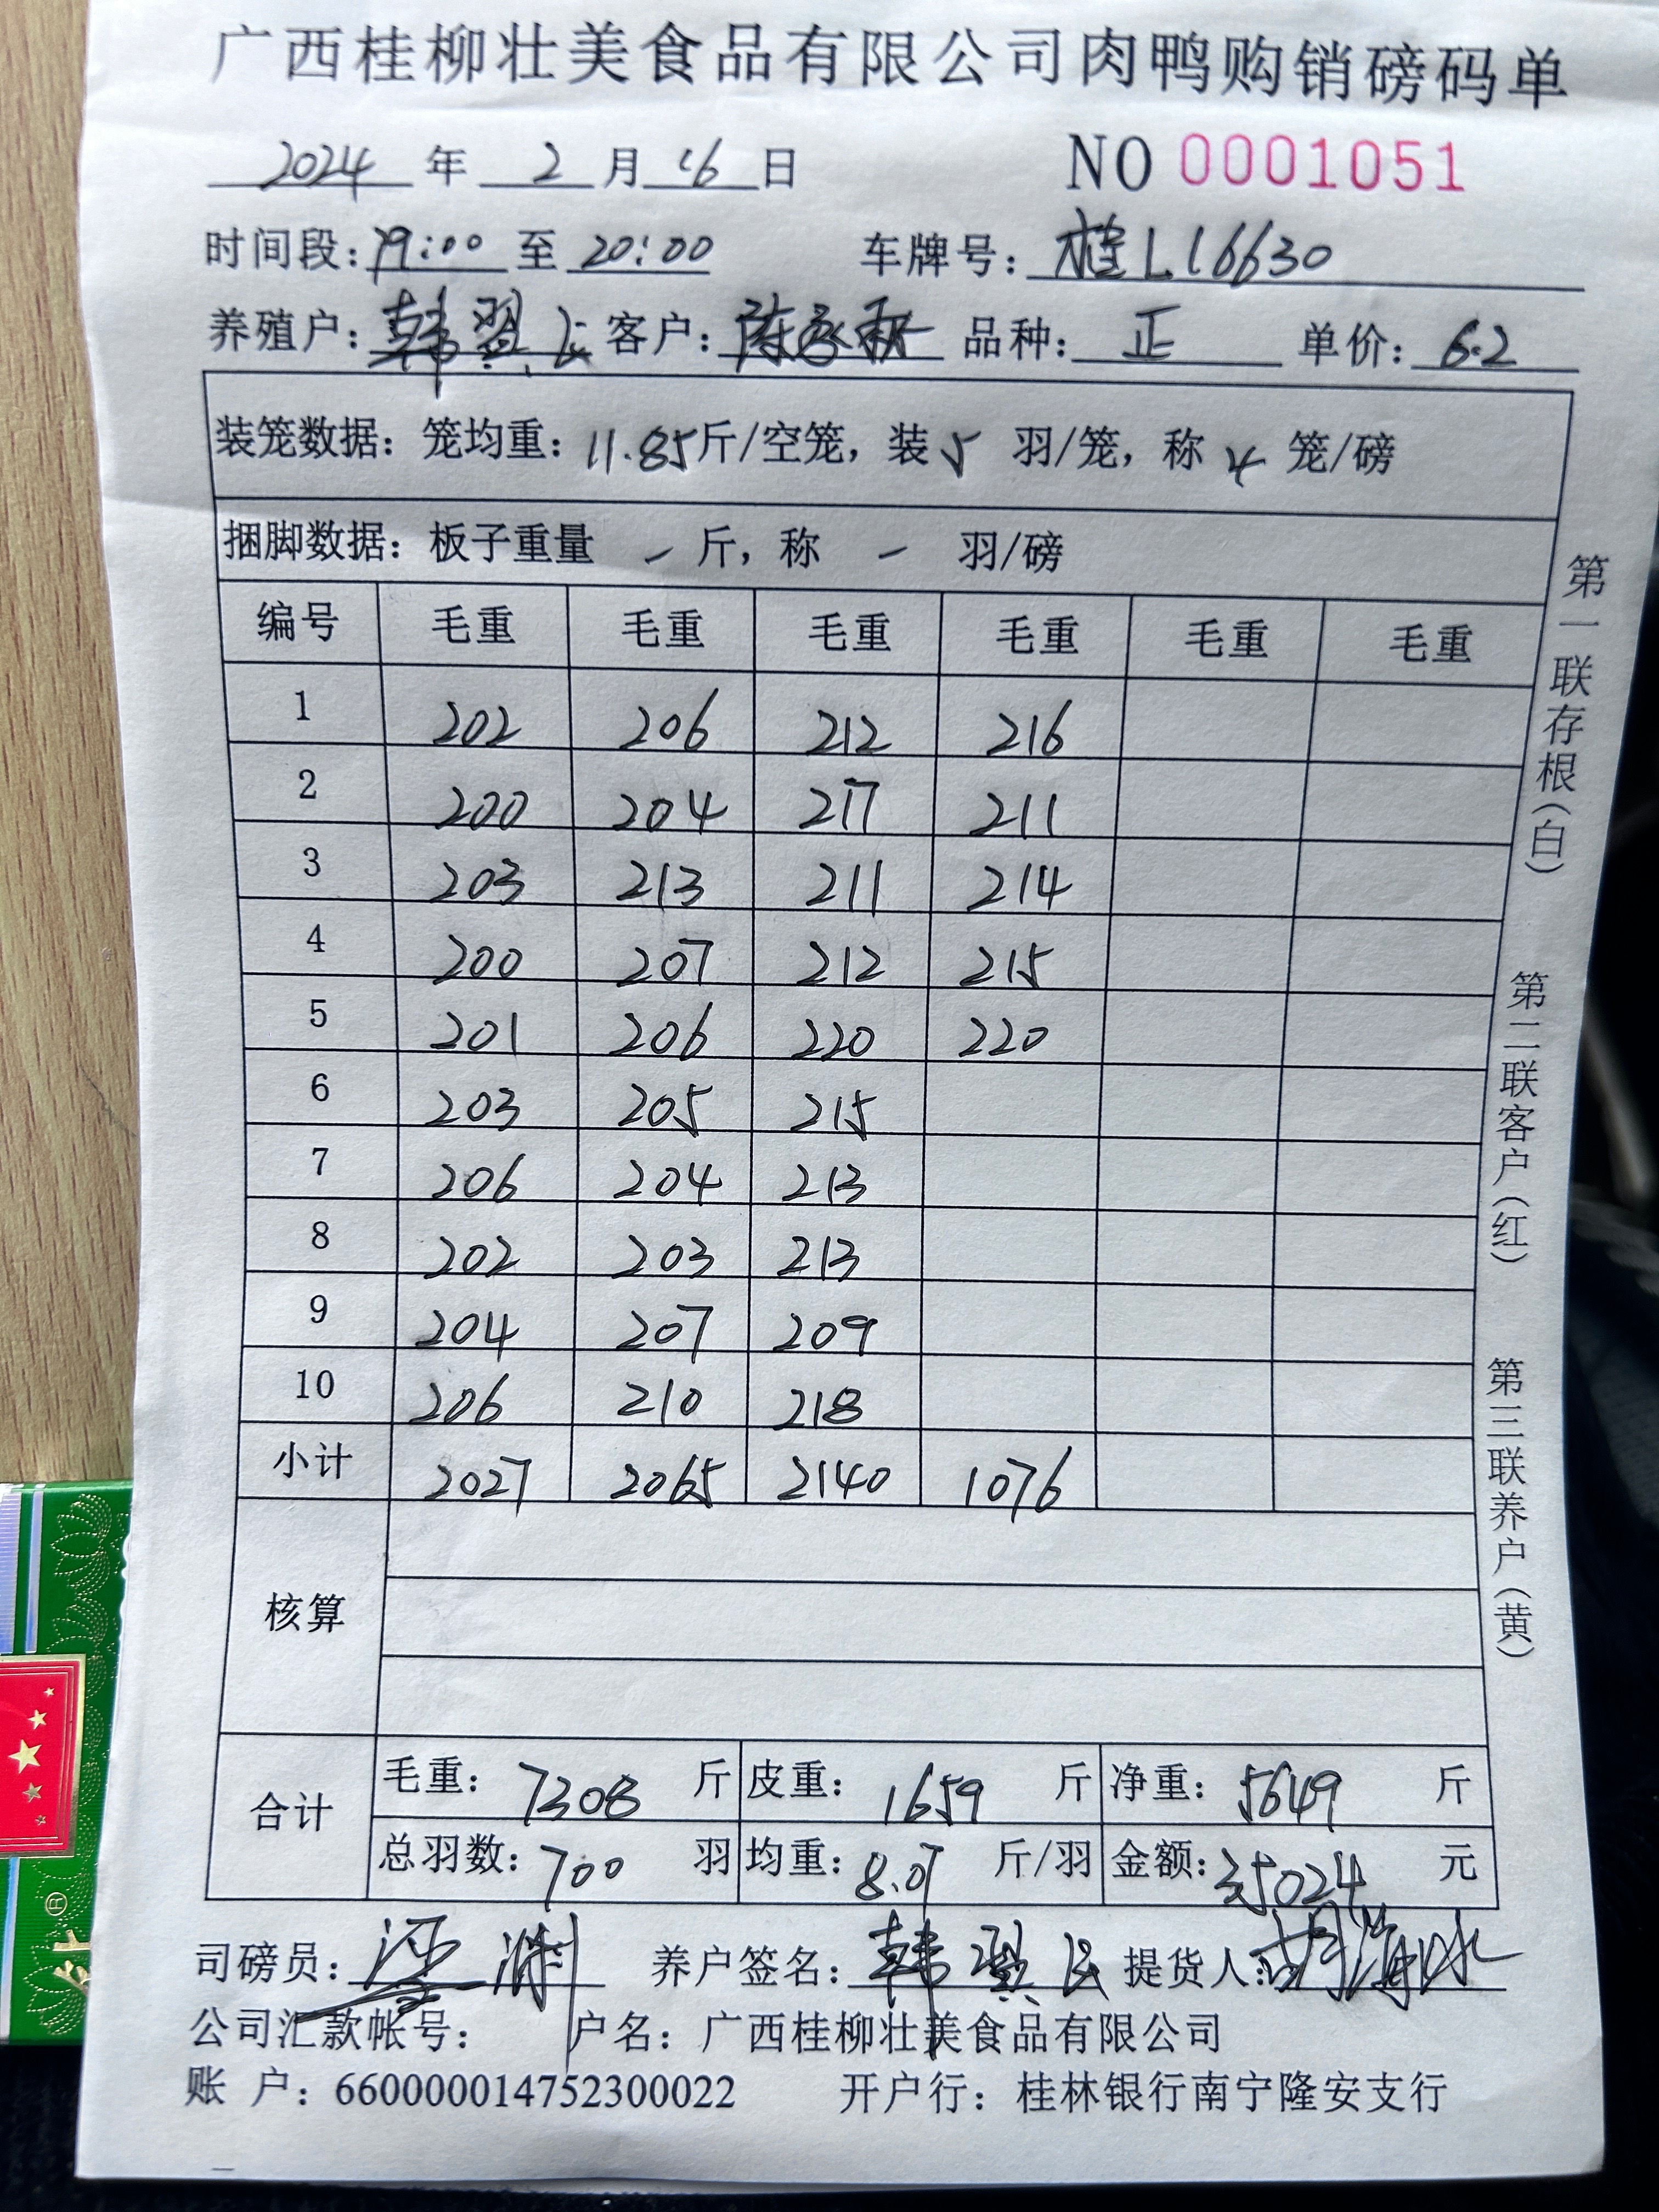 广西桂柳壮美食品有限公司肉鸭购销磅码单
2024 年 2 月 16 日 NO 0001051
时间段: 19:00 至 20:00 车牌号: 桂L16630
养殖户: 韩 客户: 陈 品种: 正 单价: 6.2
装笼数据: 笼均重: 11.85 斤/空笼, 装 5 羽/笼, 称 4 笼/磅
捆脚数据: 板子重量 - 斤, 称 - 羽/磅
编号 毛重 毛重 毛重 毛重 毛重 毛重
1 202 206 212 216
2 200 204 217 211
3 203 213 211 214
4 200 207 212 215
5 201 206 220 220
6 203 205 215
7 206 204 213
8 202 203 213
9 204 207 209
10 206 210 218
小计 2027 2065 2140 1076
核算
合计 毛重: 7308 斤 皮重: 1659 斤 净重: 5649 斤
总羽数: 700 羽 均重: 8.07 斤/羽 金额: 35024 元
司磅员: 养户签名: 韩 提货人: 胡海
公司汇款帐号: 户名: 广西桂柳壮美食品有限公司
账 户: 660000014752300022 开户行: 桂林银行南宁隆安支行
第一联存根(白)
第二联客户(红)
第三联养户(黄)
®